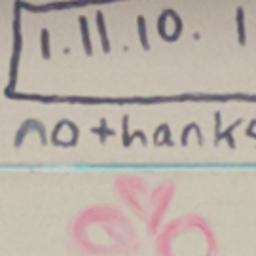 1.11.10.1
no thanks